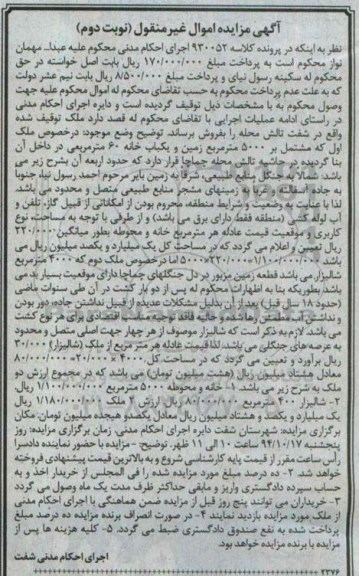 آگهی مزایده اموال غیر منقول (نوبت دوم)
نظر به اینکه در پرونده کلاسه ۹۳۰۰۵۲ اجرای احکام مدنی محکوم علیه عبدا... مهمان
نواز محکوم است به پرداخت مبلغ ۱۷۰/۰۰۰/۰۰۰ ریال بابت اصل خواسته در حق
محکوم له سکینه رسول نیای و پرداخت مبلغ ۸/۵۰۰/۰۰۰ ریال بابت نیم عشر دولت
که به علت عدم پرداخت محکوم به حسب تقاضای محکوم له اموال محکوم علیه جهت
وصول محکوم به با مشخصات ذیل توقیف گردیده است و دایره اجرای احکام مدنی
در راستای ادامه عملیات اجرایی با تقاضای محکوم له قصد دارد ملک توقیف شده
واقع در شفت تالش محله را بفروش برساند. توضیح وضع موجود: درخصوص ملک
اول که مشتمل بر ۵۰۰۰ مترمربع زمین و یکباب خانه ۶۰ مترمربعی در داخل آن
بنا گردیده در حاشیه تالش محله چماچا قرار دارد که حدود اربعه آن بشرح زیر می
باشد: شمالا به جنگل و منابع طبیعی، شرقا به زمین بایر مرحوم احمد رسول نیا، جنوبا
به جاده آسفالته و غربا به زمینهای مشجر منابع طبیعی متصل و محدود می باشد.
لذا با عنایت به وضعیت و شرایط منطقه، محروم بودن از امکاناتی از قبیل گاز، تلفن و
آب لوله کشی (منطقه فقط دارای برق می باشد) و از طرفی با توجه به مساحت، نوع
کاربری و موقعیت قیمت عادله هر مترمربع خانه و محوطه بطور میانگین ۲۲۰/۰۰۰
ریال تعیین و اعلام می گردد که در مساحت کل یک میلیارد و یکصد میلیون ریال می
باشد ۱/۱۰۰/۰۰۰/۰۰۰=۲۲۰/۰۰۰×۵۰۰۰ اما درخصوص ملک دوم که ۴۰۰۰ مترمربع
شالیزار می باشد قطعه زمین مزبور در دل جنگلهای چماچا دارای موقعیت بسیار بد می
باشد بطوریکه بنا به اظهارات محکوم له پس از دو بار کشت در آن طی سنوات ماضی
(حدود ۱۸ سال قبل) بعد از آن بدلیل مشکلات عدیده از قبیل نداشتن جاده، دور بودن
می باشد. لازم به ذکر است که شالیزار موصوف از هر چهار جهت اصلی متصل و محدود
به عرصه های جنگلی می باشد. لذا قیمت عادله هر متر مربع از ملک (شالیزار)
ریال برآورد و تعیین می گردد که در مساحت کل
معادل هشتاد میلیون ریال (هشت میلیون تومان) می باشد که در مجموع ارزش دو
ملک به شرح زیر می باشد. ۱- خانه و محوطه ۵۰۰۰ مترمربع ۱/۱۰۰/۰۰۰/۰۰۰ ریال.
۲- شالیزار ۴۰۰۰ مترمربع ۸۰/۰۰۰/۰۰۰ ریال. ارزش ۲ ملک ۱/۱۸۰/۰۰۰/۰۰۰ ریال
یک میلیارد و یکصد و هشتاد میلیون ریال معادل یکصد و هیجده میلیون تومان. مکان
برگزاری مزایده: شهرستان شفت دایره اجرای احکام مدنی. زمان برگزاری مزایده: روز
پنجشنبه ۹۴/۱۰/۱۷ ساعت ۱۰ الی ۱۱ ظهر. توضیح: - مزایده با حضور نماینده دادسرا
رأس ساعت مقرر از قیمت پایه کارشناسی شروع و به بالاترین قیمت پیشنهادی فروخته
خواهد شد. ۲- ده درصد مبلغ مورد مزایده شده را فی المجلس از خریدار اخذ و به
حساب سپرده دادگستری واریز و مابقی حداکثر ظرف مدت یک ماه وصول می گردد
۳- خریداران می توانند پنج روز قبل از مزایده ضمن هماهنگی با اجرای احکام مدنی
از ملک مورد مزایده بازدید نمایند ۴- در صورت انصراف برنده مزایده ده درصد مبلغ
پرداخت شده به نفع صندوق دادگستری ضبط می گردد. ۵- کلیه هزینه ها پس از
مزایده با برنده مزایده خواهد بود.
اجرای احکام مدنی شفت
۲۲۷۶